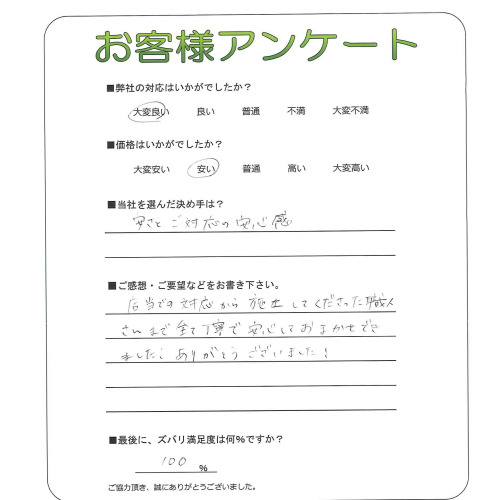 お客様アンケート
■弊社の対応はいかがでしたか？
大変良い 良い 普通 不満 大変不満
■価格はいかがでしたか？
大変安い 安い 普通 高い 大変高い
■当社を選んだ決め手は？
安さとご対応の安心感
■ご感想・ご要望などをお書き下さい。
店当での対応から施工してくださった職人
さんまで全て丁寧で安心しておまかせでき
ました！ありがとうございました！
■最後に、ズバリ満足度は何%ですか？
100 %
ご協力頂き、誠にありがとうございました。